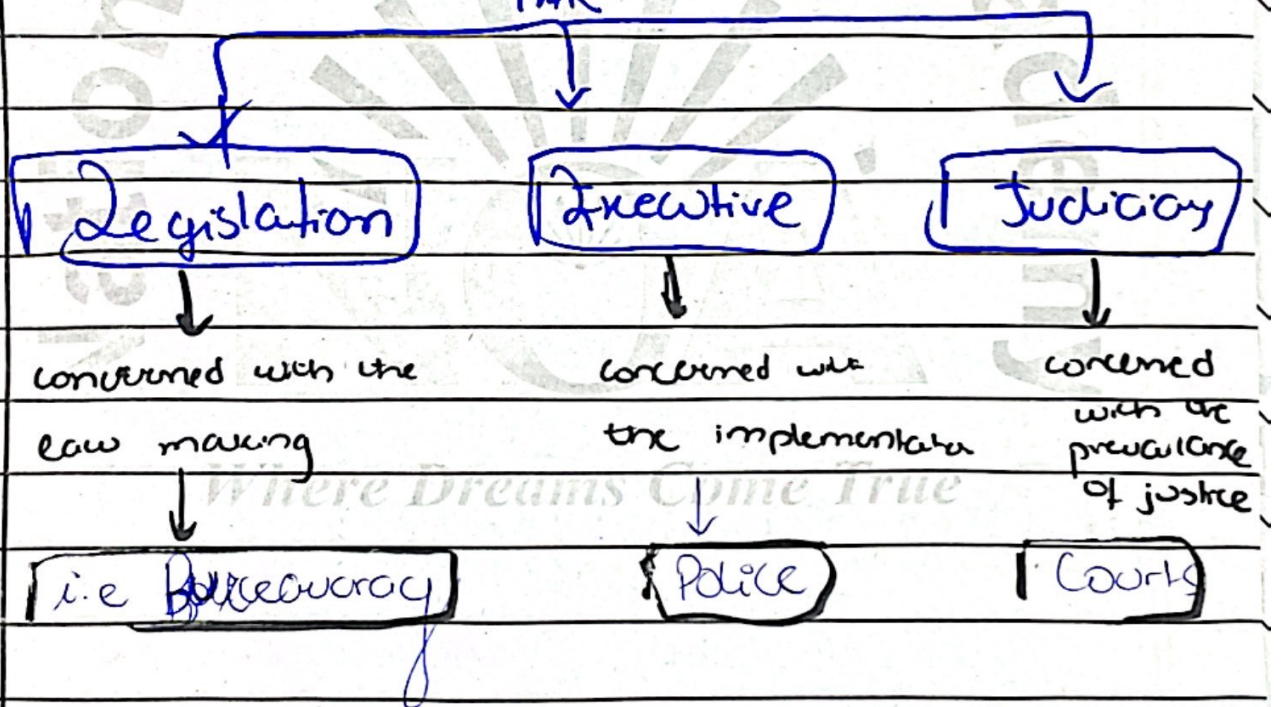 Legislation
Executive
Judiciary
concerned with the
law making
concerned with
the implementation
concerned
with the
prevailance
of justice
Where Dreams Come True
i.e Bureaucracy
Police
Courts